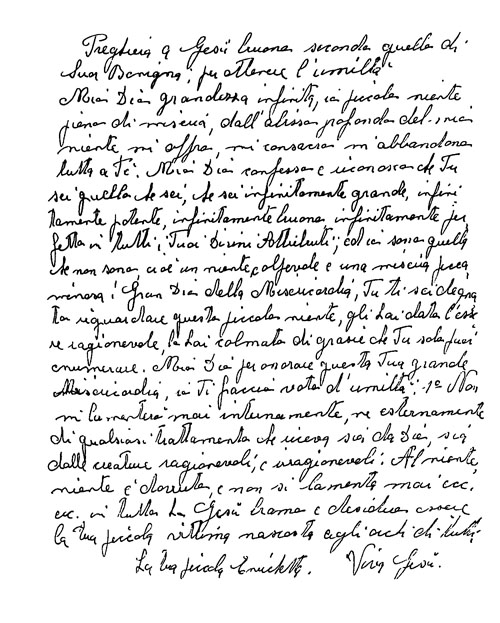 Preghiera a Gesù buono secondo quella di
Suor Benigna, per ottenere l'umiltà.
Mio Dio grandezza infinita, io piccolo niente
pieno di miseria, dall'abisso profondo del mio
niente mi offro, mi consacro m'abbandono
tutta a Te. Mio Dio confesso e riconosco che Tu
sei quello che sei, che sei infinitamente grande, infini
tamente potente, infinitamente buono infinitamente per
fetto in tutti i Tuoi Divini Attributi; ed io sono quella
che non sono, cioè un niente, colpevole e una miseria pecca
minosa! Gran Dio della Misericordia, Tu ti sei degna
to riguardare questo piccolo niente, gli hai dato l'esse
re ragionevole, l'hai colmato di grazie che Tu solo puoi
enumerare. Mio Dio per onorare questa Tua grande
Misericordia, io Ti faccio voto d'umiltà: 1º Non
mi lamenterò mai internamente, ne esternamente
di qualsiasi trattamento che riceva sia da Dio, sia
dalle creature ragionevoli, e irragionevoli. Al niente,
niente è dovuto, e non si lamenta mai ecc.
ecc. in tutto La Gesù bramo e desidero essere
la tua piccola vittima nascosta agli occhi di tutti.
La tua piccola Enrichetta. Viva Gesù.